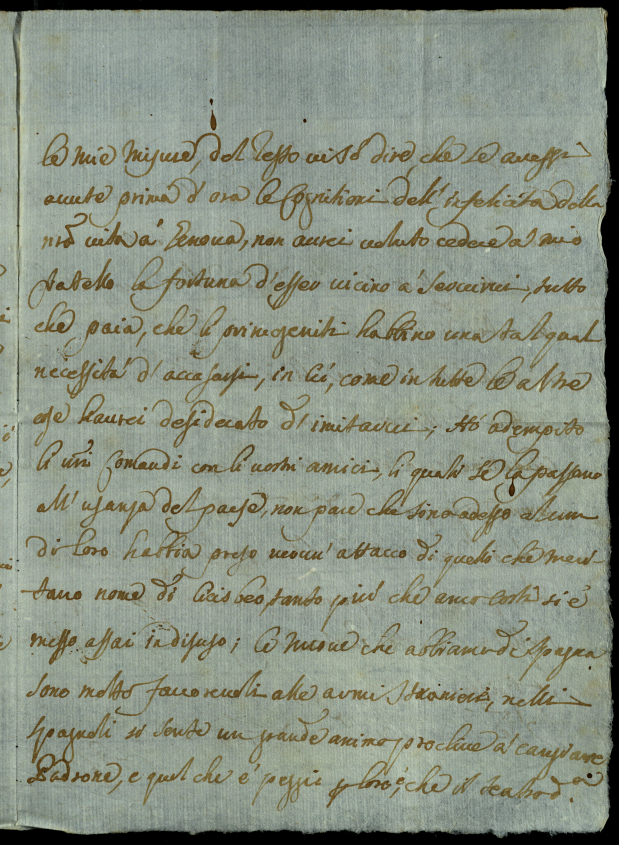 le mie misure, del resto vi sò dire, che se avessi
avute prima d'ora le Cognitioni dell'infelicita della
nrã vita à Genova, non avrei voluto cedere al mio
fratello la fortuna d'esser vicino à servirvi, tutto
che paia, che li primogeniti habbino una tal qual
necessità d'accasarsi, in ciò, come in tutte le altre
cose haurei desiderato d'imitarvi; Hò adempito
li vrĩ Comandi con li vostri amici, li quali se la passano
all'usanza del paese, non pare che sino adesso alcun
di loro habbia preso nessun' attacco di quelli che meri
tano nome di Cicisbeo, tanto più che anco costì si è
messo assai in disuso; le nuove che abbiamo di Spagna
sono molto favorevoli alle armi straniere, nelli
spagnoli si sente un grande animo proclive à cangiare
Padrone, e quel che è peggio p loro è, che il